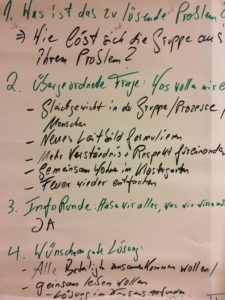 1. Was ist das zu lösende Problem?
⇒ Wie löst sich die Gruppe aus
ihrem Problem?
2. Übergeordnete Frage: Was wollen wir e
- Gleichgewicht in der Gruppe/Prozesse/
Menschen
- Neues Leitbild formulieren
- Mehr Verständnis + Respekt füreinander
- Gemeinsam Wohnen im Klostergarten
- Feuer wieder entfachen
3. InfoRunde: Haben wir alles, was wir
JA
4. Wünschenswerte Lösung:
- Alle Beteiligte zusammenkommen wollen/
geinsam leben wollen
- Lösung im Konsens gefunden